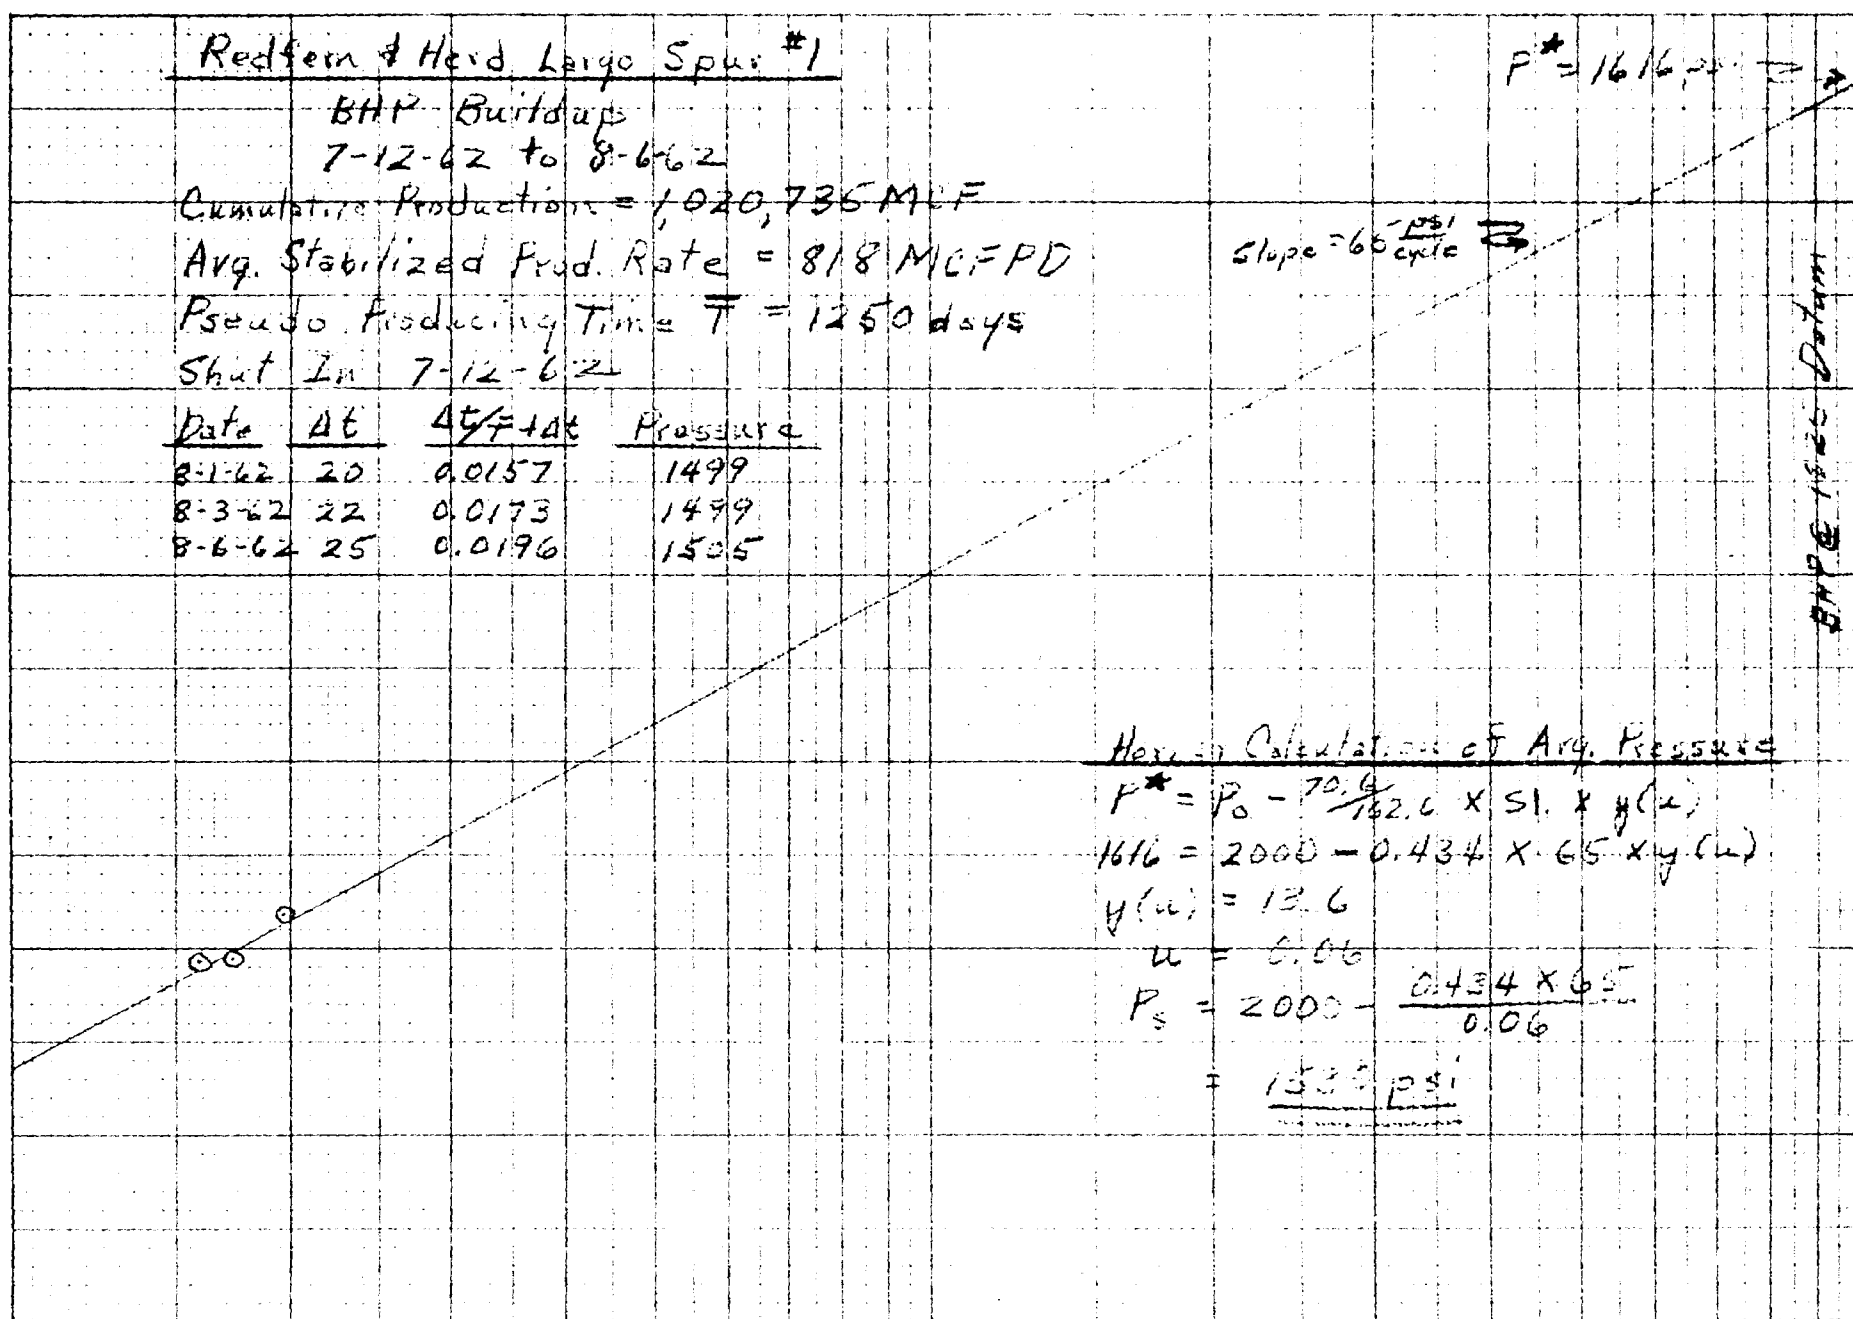 Redfern & Herd Largo Spur #1
BHP Buildup
7-12-62 to 8-6-62
Cumulative Production = 1,020,735 MCF
Avg. Stabilized Prod. Rate = 818 MCFPD
Pseudo Producing Time T̅ = 1250 days
Shut In 7-12-62
Date Δt Δt/T̅+Δt Pressure
8-1-62 20 0.0157 1499
8-3-62 22 0.0173 1499
8-6-62 25 0.0196 1505
P* = 1616 psi
Slope = 65 psi/cycle
BHP @ 1525 Datum
Calculation of Avg. Pressure
P* = P₀ - 70.6/162.6 x Sl. x y(u)
1616 = 2000 - 0.434 x 65 x y(u)
y(u) = 13.6
u = 0.06
Ps = 2000 - 0.434 x 65 / 0.06
= psi